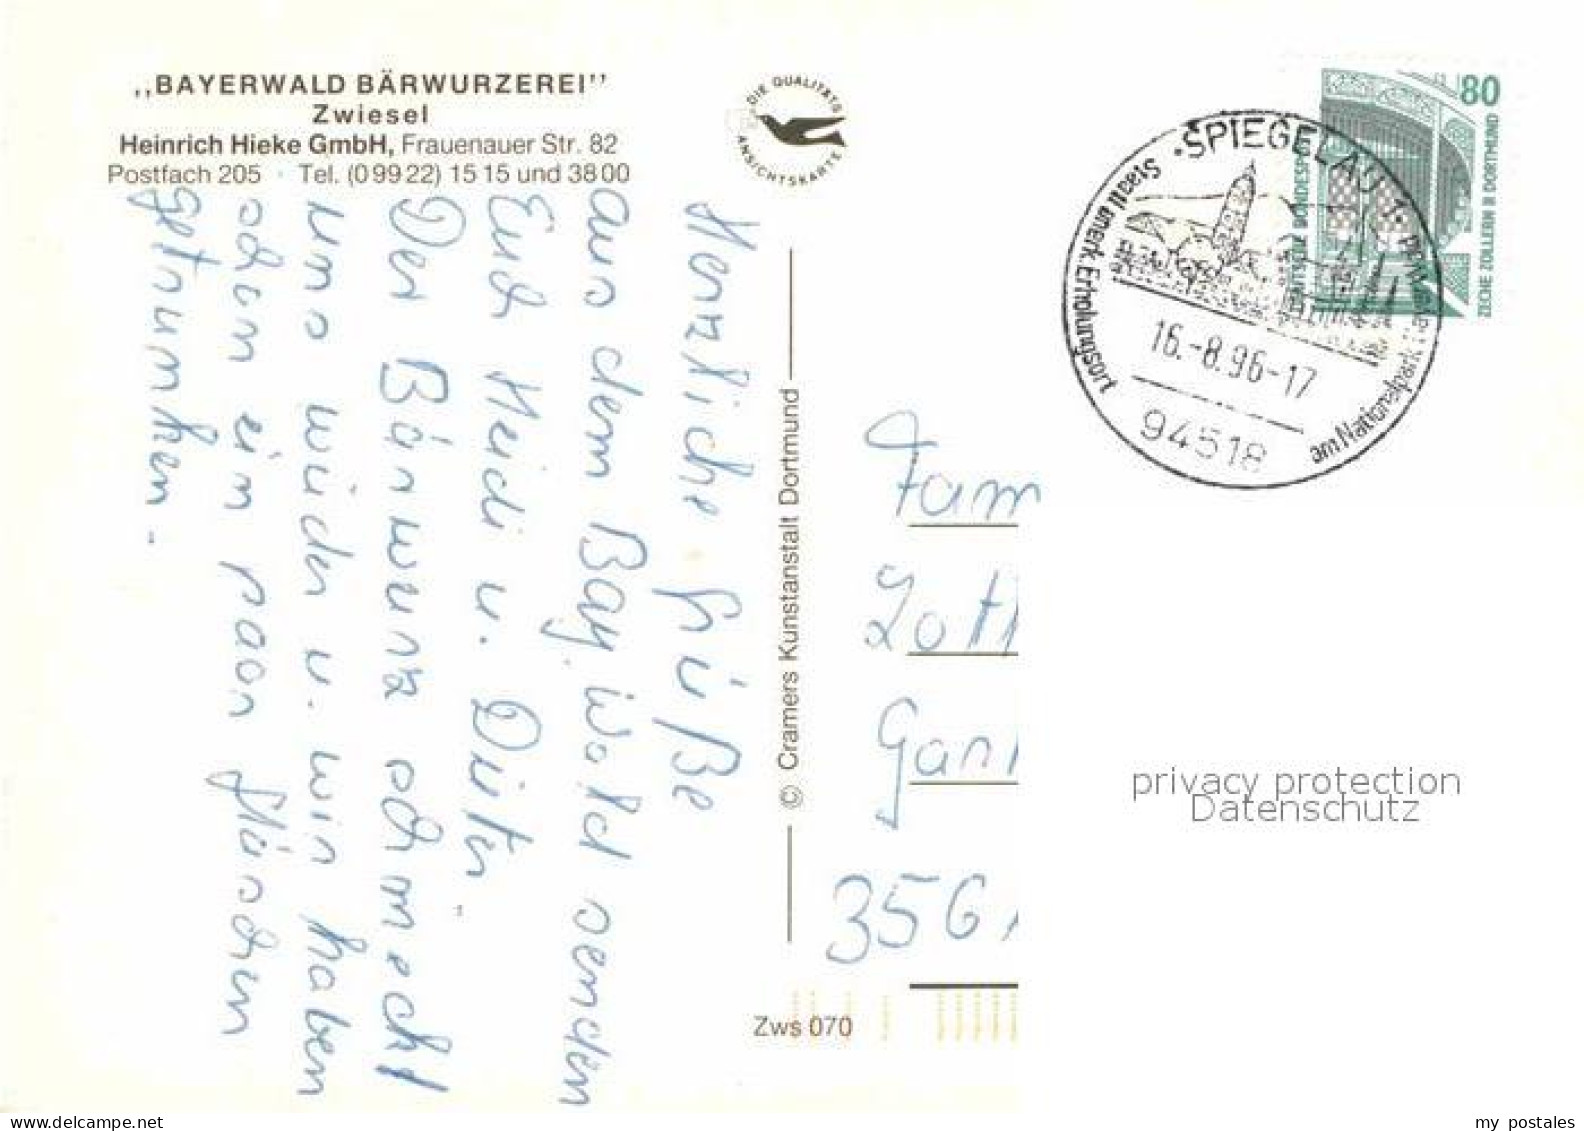 „BAYERWALD BÄRWURZEREI”
Zwiesel
Heinrich Hieke GmbH, Frauenauer Str. 82
Postfach 205 · Tel. (0 99 22) 15 15 und 38 00
DIE QUALITÄTS
ANSICHTSKARTE
Herzliche Grüße
aus dem Bay. Wald senden
Euch Heidi u. Dieter.
Der Bärwurz schmeckt
uns wieder u. wir haben
schon ein paar Gläschen
getrunken.
© Cramers Kunstanstalt Dortmund
Zws 070
80
DEUTSCHE BUNDESPOST
ZECHE ZOLLERN II DORTMUND
· SPIEGELAU 1 ·
Staatl anerk. Erholungsort
am Nationalpark
16.-8.96-17
94518
Fam
Loth
Gar
356
privacy protection
Datenschutz
www.delcampe.net
my postales